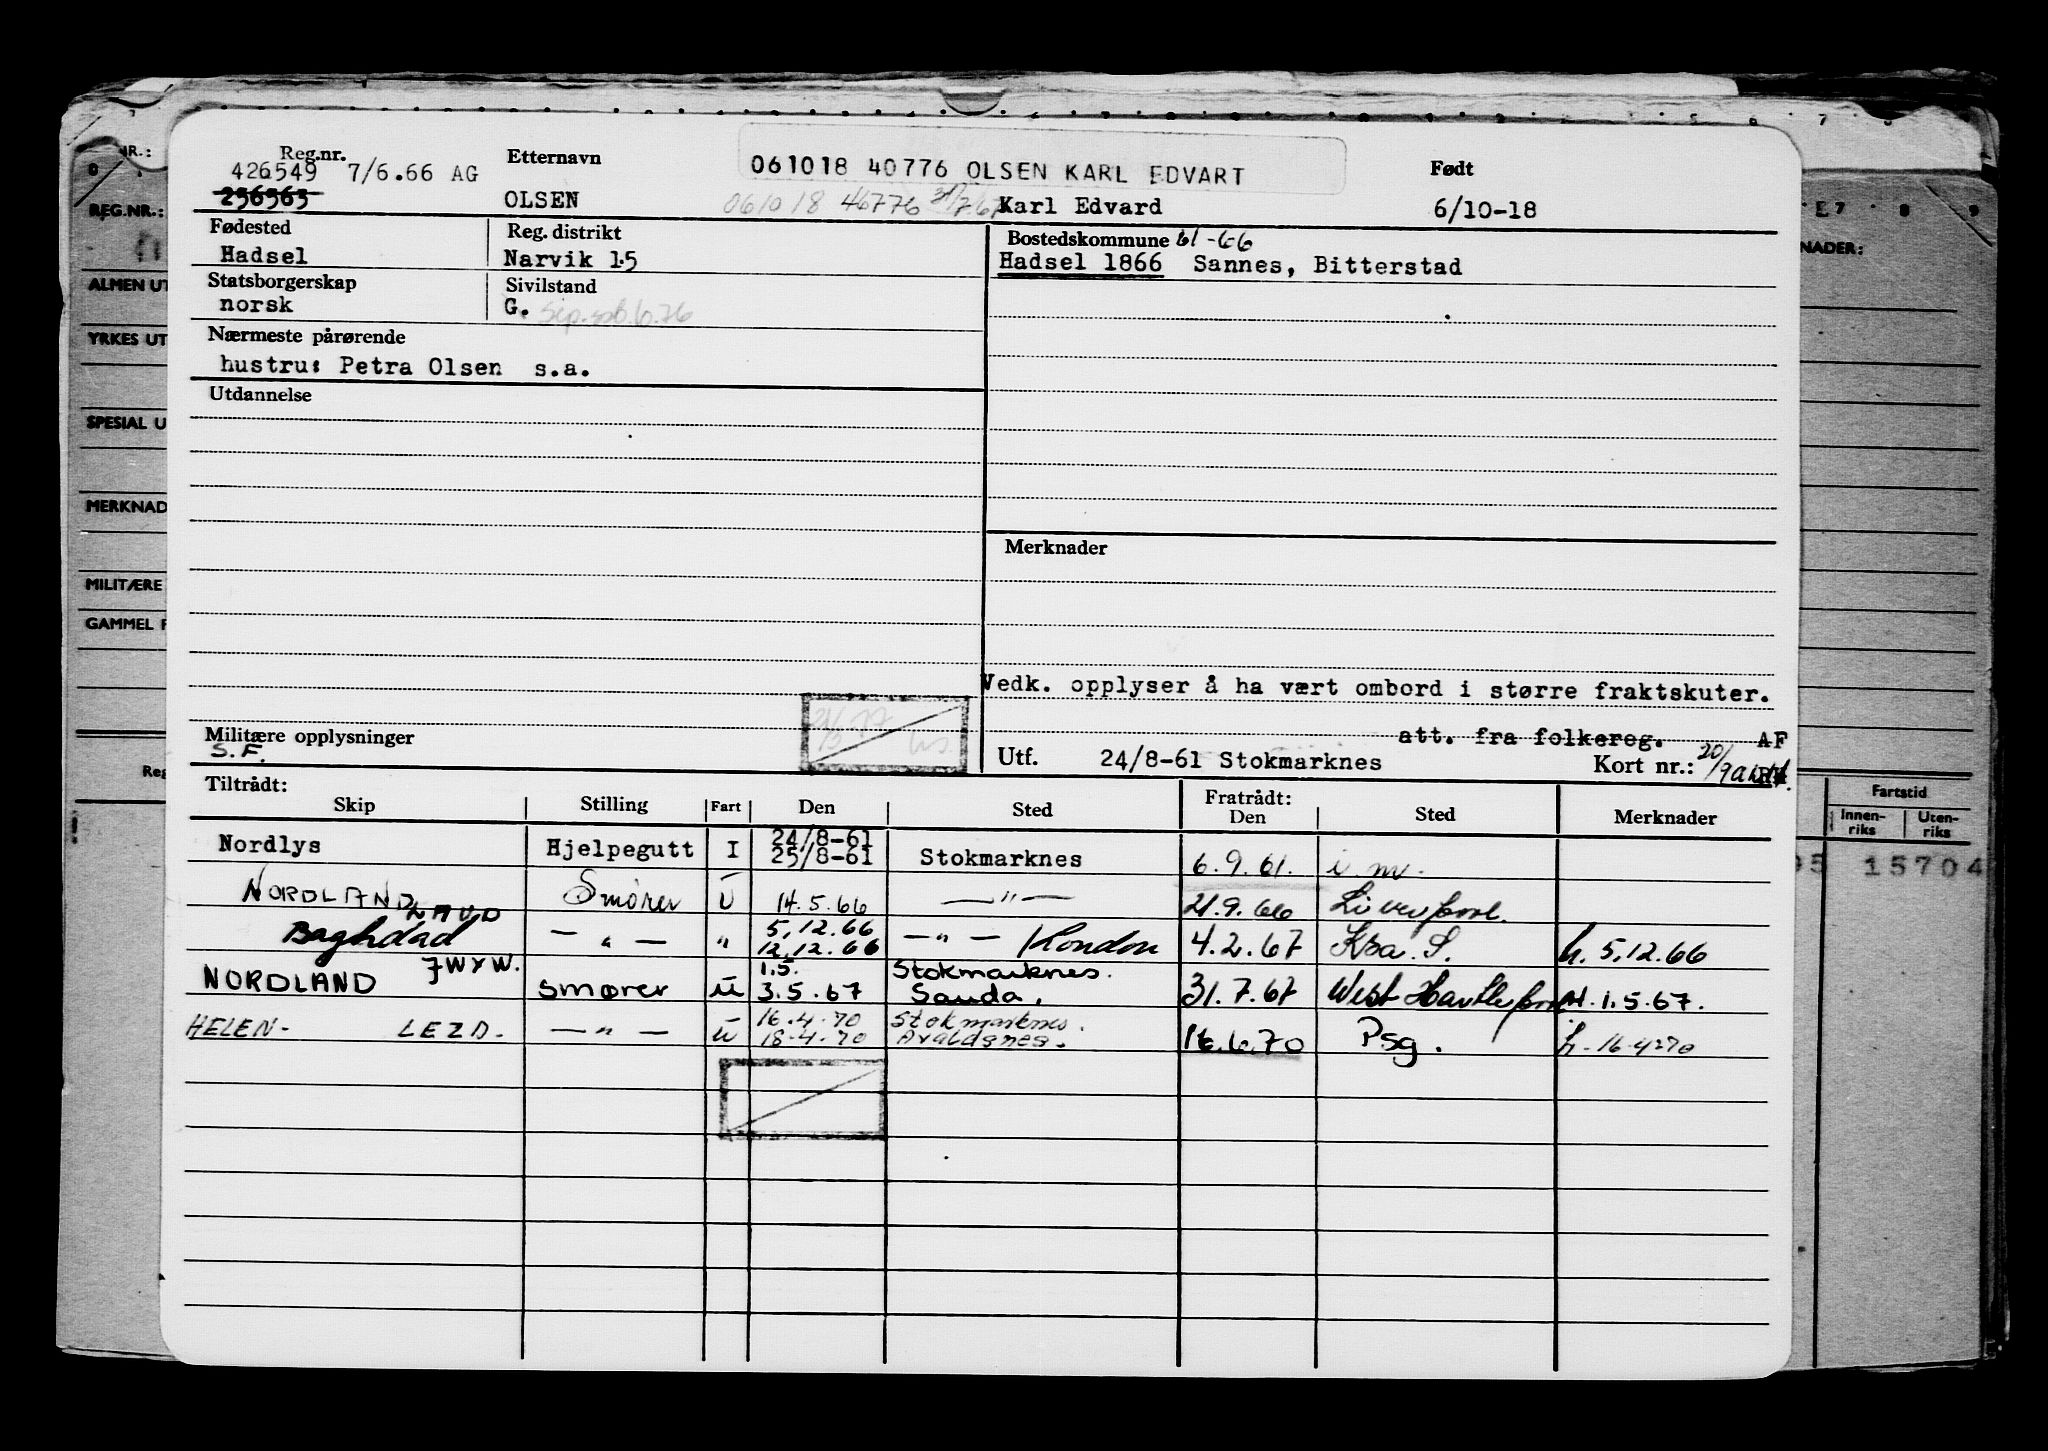 Reg.nr. Etternavn 061018 40776 OLSEN KARL EDVART Født
426549 7/6.66 AG
256563 OLSEN 061018 40776 Karl Edvard 6/10-18
Fødested Reg. distrikt Bostedskommune 61-66
Hadsel Narvik 15 Hadsel 1866 Sannes, Bitterstad
Statsborgerskap Sivilstand
norsk G.
Nærmeste pårørende
hustru: Petra Olsen s.a.
Utdannelse
Merknader
Vedk. opplyser å ha vært ombord i større fraktskuter.
att. fra folkereg. AF
Militære opplysninger
S.F.
Utf. 24/8-61 Stokmarknes Kort nr.: 20/9
Tiltrådt: Fratrådt:
Skip Stilling Fart Den Sted Den Sted Merknader
Nordlys Hjelpegutt I 24/8-61 25/8-61 Stokmarknes 6.9.61. i.m.
NORDLAND Smører U 14.5.66 — " — 21.9.66 Liverpool.
Baghdad LAUD — " — " 5.12.66 12.12.66 — " — London 4.2.67 Ksa. S. h. 5.12.66
NORDLAND JWXW. smører U 1.5. 3.5.67 Stokmarknes. Sauda. 31.7.67 West Hartlepool H. 1.5.67.
HELEN- LEZD. — " — U 16.4.70 18.4.70 Stokmarknes. Avaldsnes. 16.6.70 Psg. h. 16-4-70
NR.:
REG.NR.:
ALMEN UT
YRKES UT
SPESIAL U
MERKNAD
MILITÆRE
GAMMEL F
Reg
NADER:
Fartstid
Innen-riks Uten-riks
15704